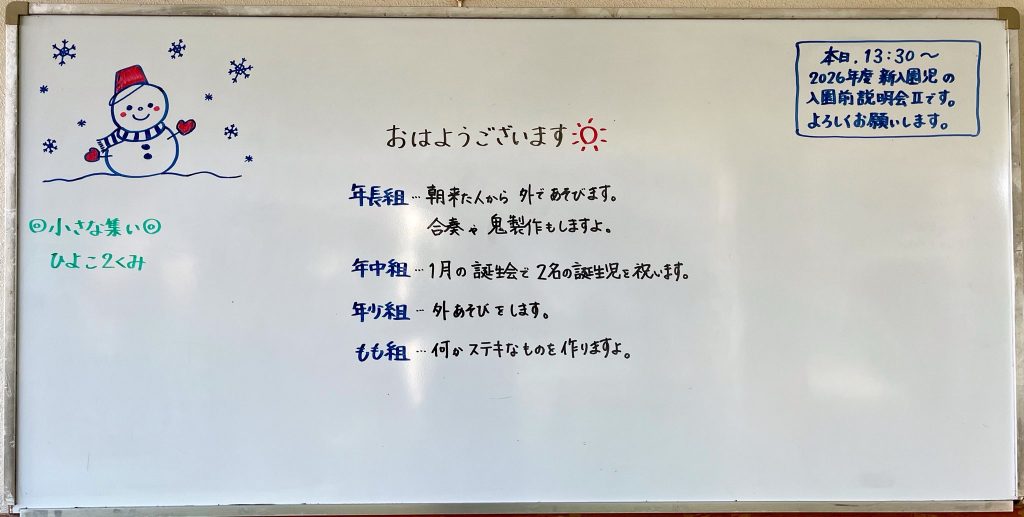 本日、13:30～
2026年度 新入園児の
入園前説明会Ⅱです。
よろしくお願いします。
おはようございます
年長組…朝来た人から 外であそびます。
合奏や 鬼製作もしますよ。
年中組…1月の誕生会で 2名の誕生児を祝います。
年少組…外あそびをします。
もも組…何かステキなものを作りますよ。
◎小さな集い◎
ひよこ2くみ